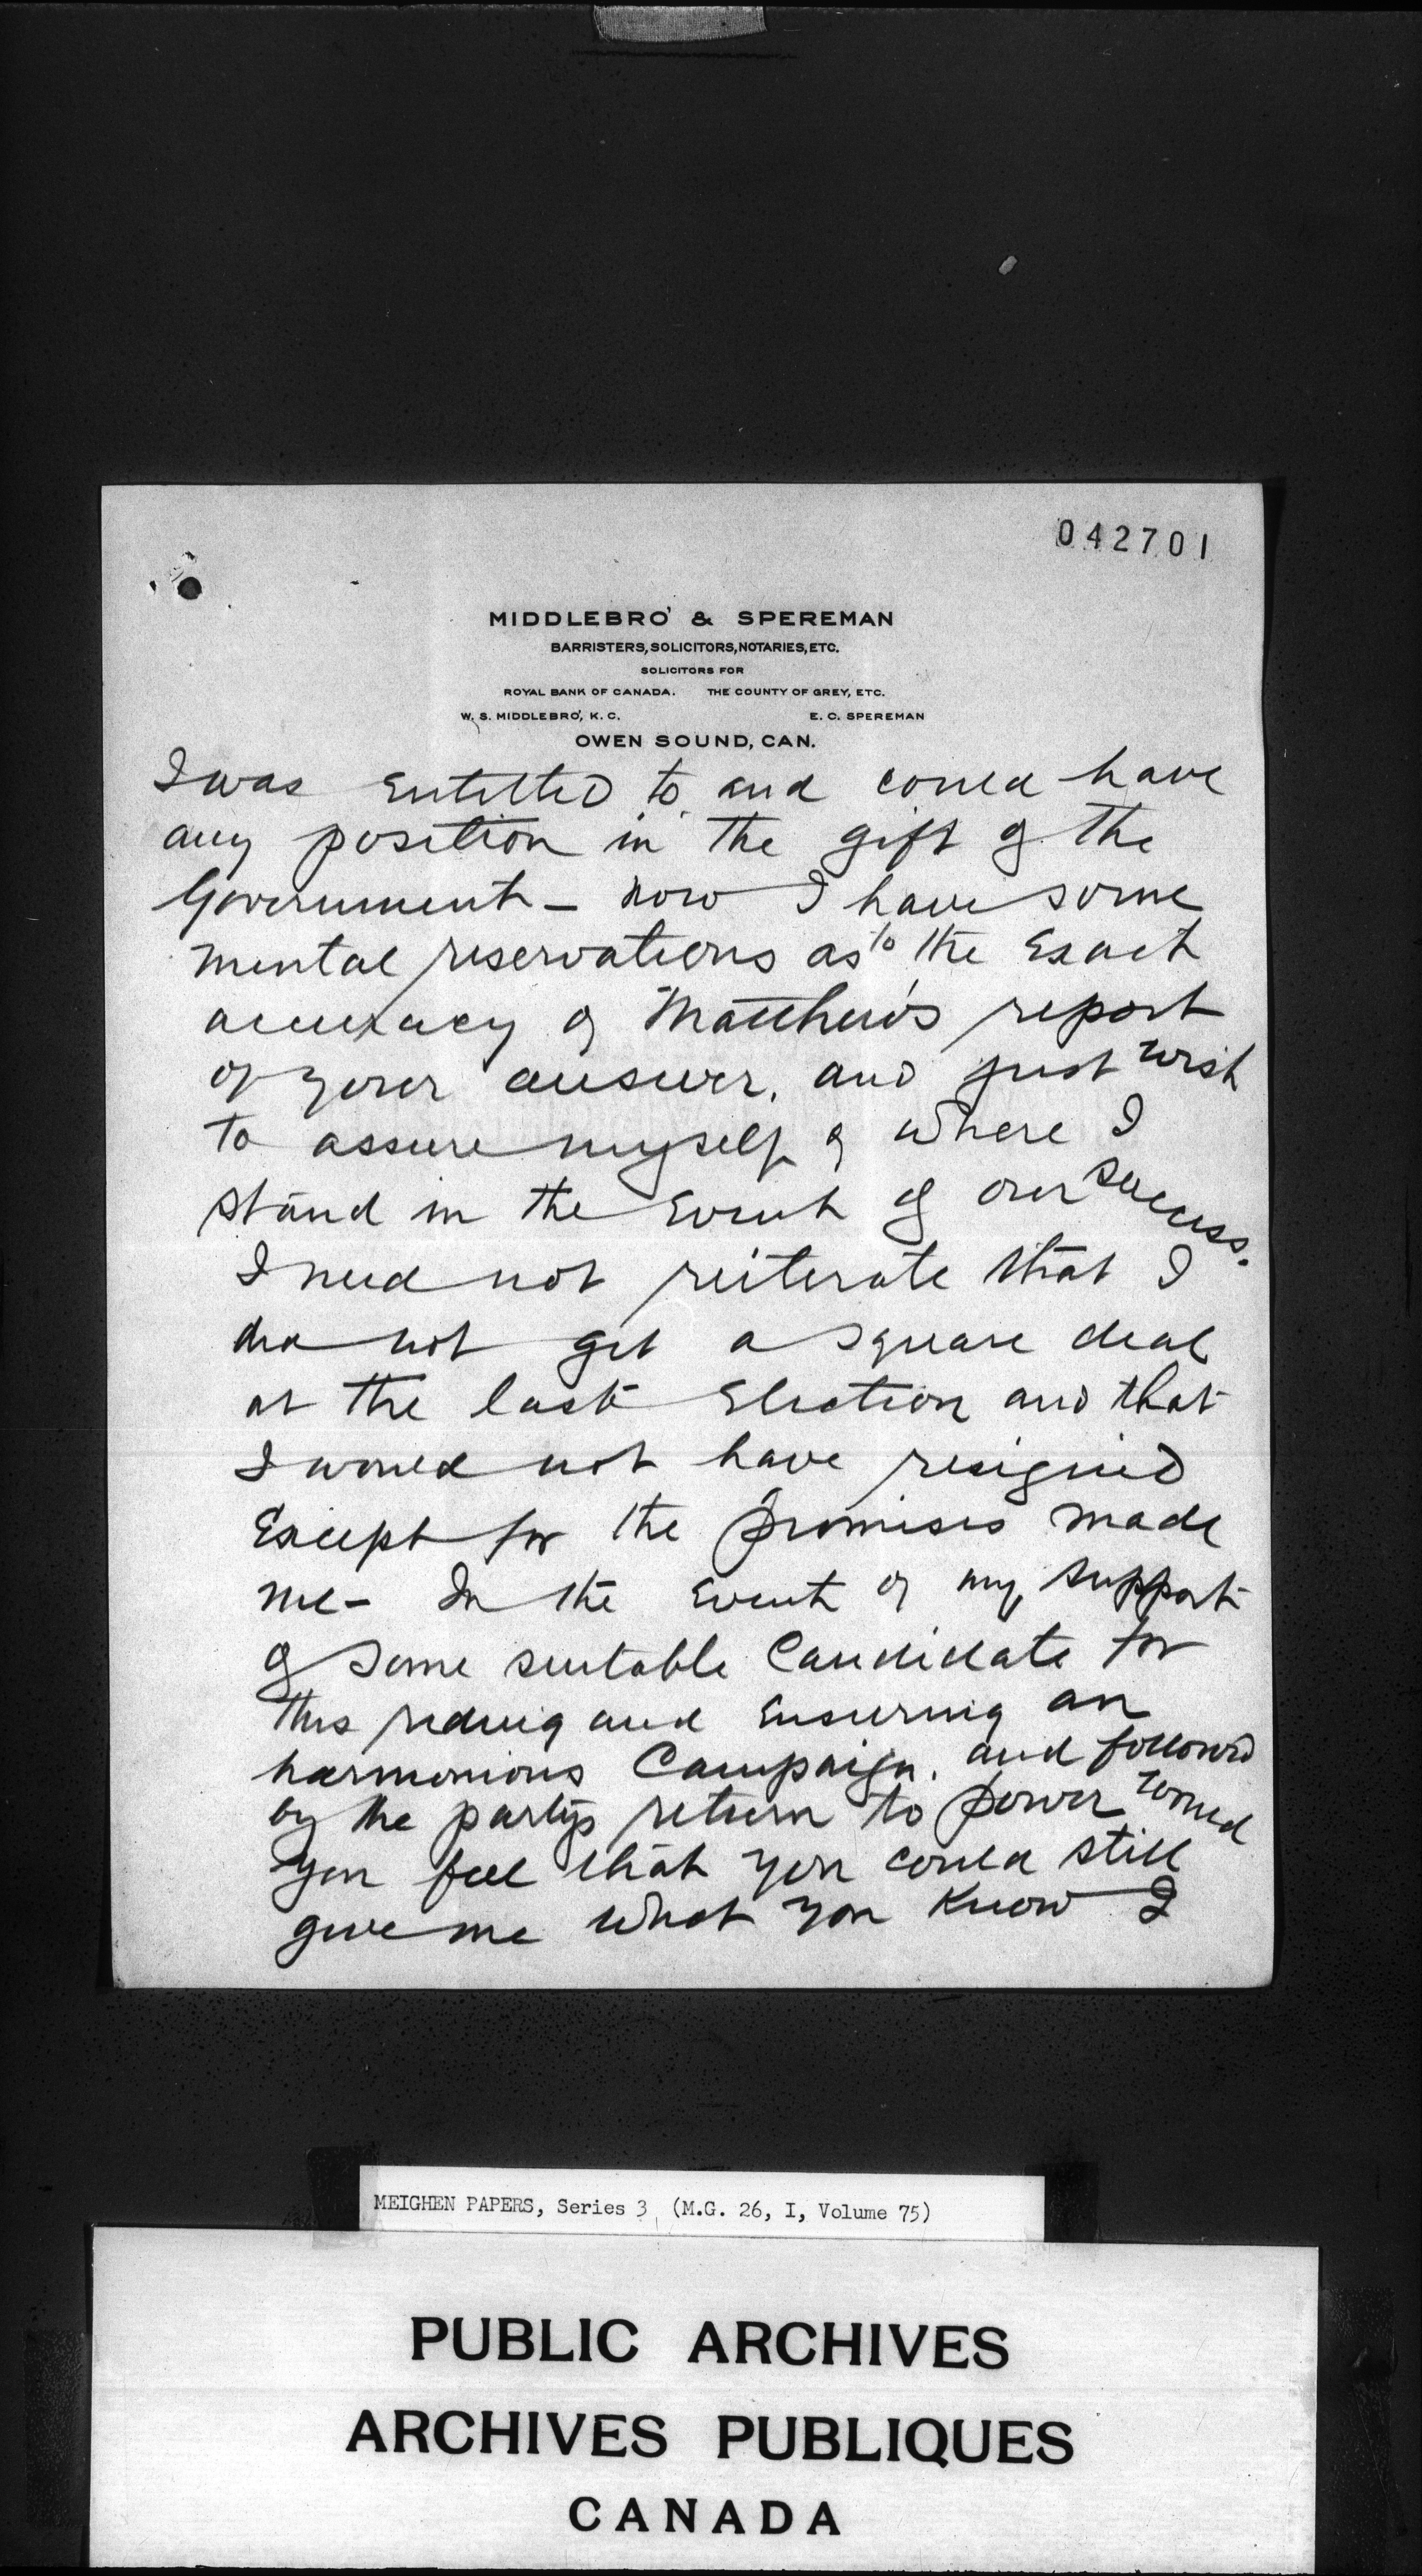 042701
MIDDLEBRO' & SPEREMAN
BARRISTERS, SOLICITORS, NOTARIES, ETC.
SOLICITORS FOR
ROYAL BANK OF CANADA. THE COUNTY OF GREY, ETC.
W. S. MIDDLEBRO', K. C. E. C. SPEREMAN
OWEN SOUND, CAN.
I was entitled to and could have
any position in the gift of the
Government - now I have some
mental reservations as to the exact
accuracy of Matthews report
of your answer, and just wish
to assure myself of where I
stand in the event of our success.
I need not reiterate that I
did not get a square deal
at the last election and that
I would not have resigned
except for the promises made
me - In the event of my support
of some suitable Candidate for
this riding and ensuring an
harmonious Campaign, and followed
by the partys return to power would
you feel that you could still
give me what you know I
MEIGHEN PAPERS, Series 3 (M.G. 26, I, Volume 75)
PUBLIC ARCHIVES
ARCHIVES PUBLIQUES
CANADA